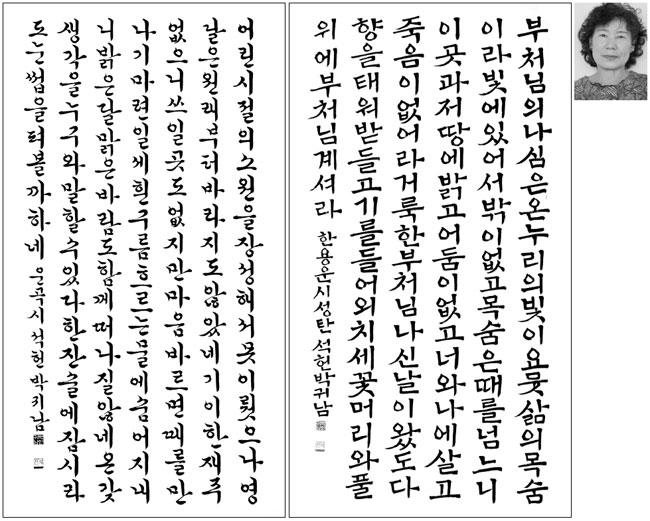 부처님의나심은온누리의빛이요뭇삶의목숨
이라빛에있어서밖이없고목숨은때를넘느니
이곳과저땅에밝고어둠이없고너와나에살고
죽음이없어라거룩한부처님나신날이왔도다
향을태워받들고기를들어외치세꽃머리와풀
위에부처님계셔라 한용운시성탄석헌박귀남
어린시절의소원을장성해서못이뤘으나영
달은원래부터바라지도않았네기이한재주
없으니쓰일곳도없지만마음바르면때를만
나기마련일세흰구름흐르는물에숨어지내
니밝은달맑은바람도함께떠나질않네온갖
생각을누구와말할수있나한잔술에잠시라
도눈썹을펴볼까하네 운곡시석헌박귀남